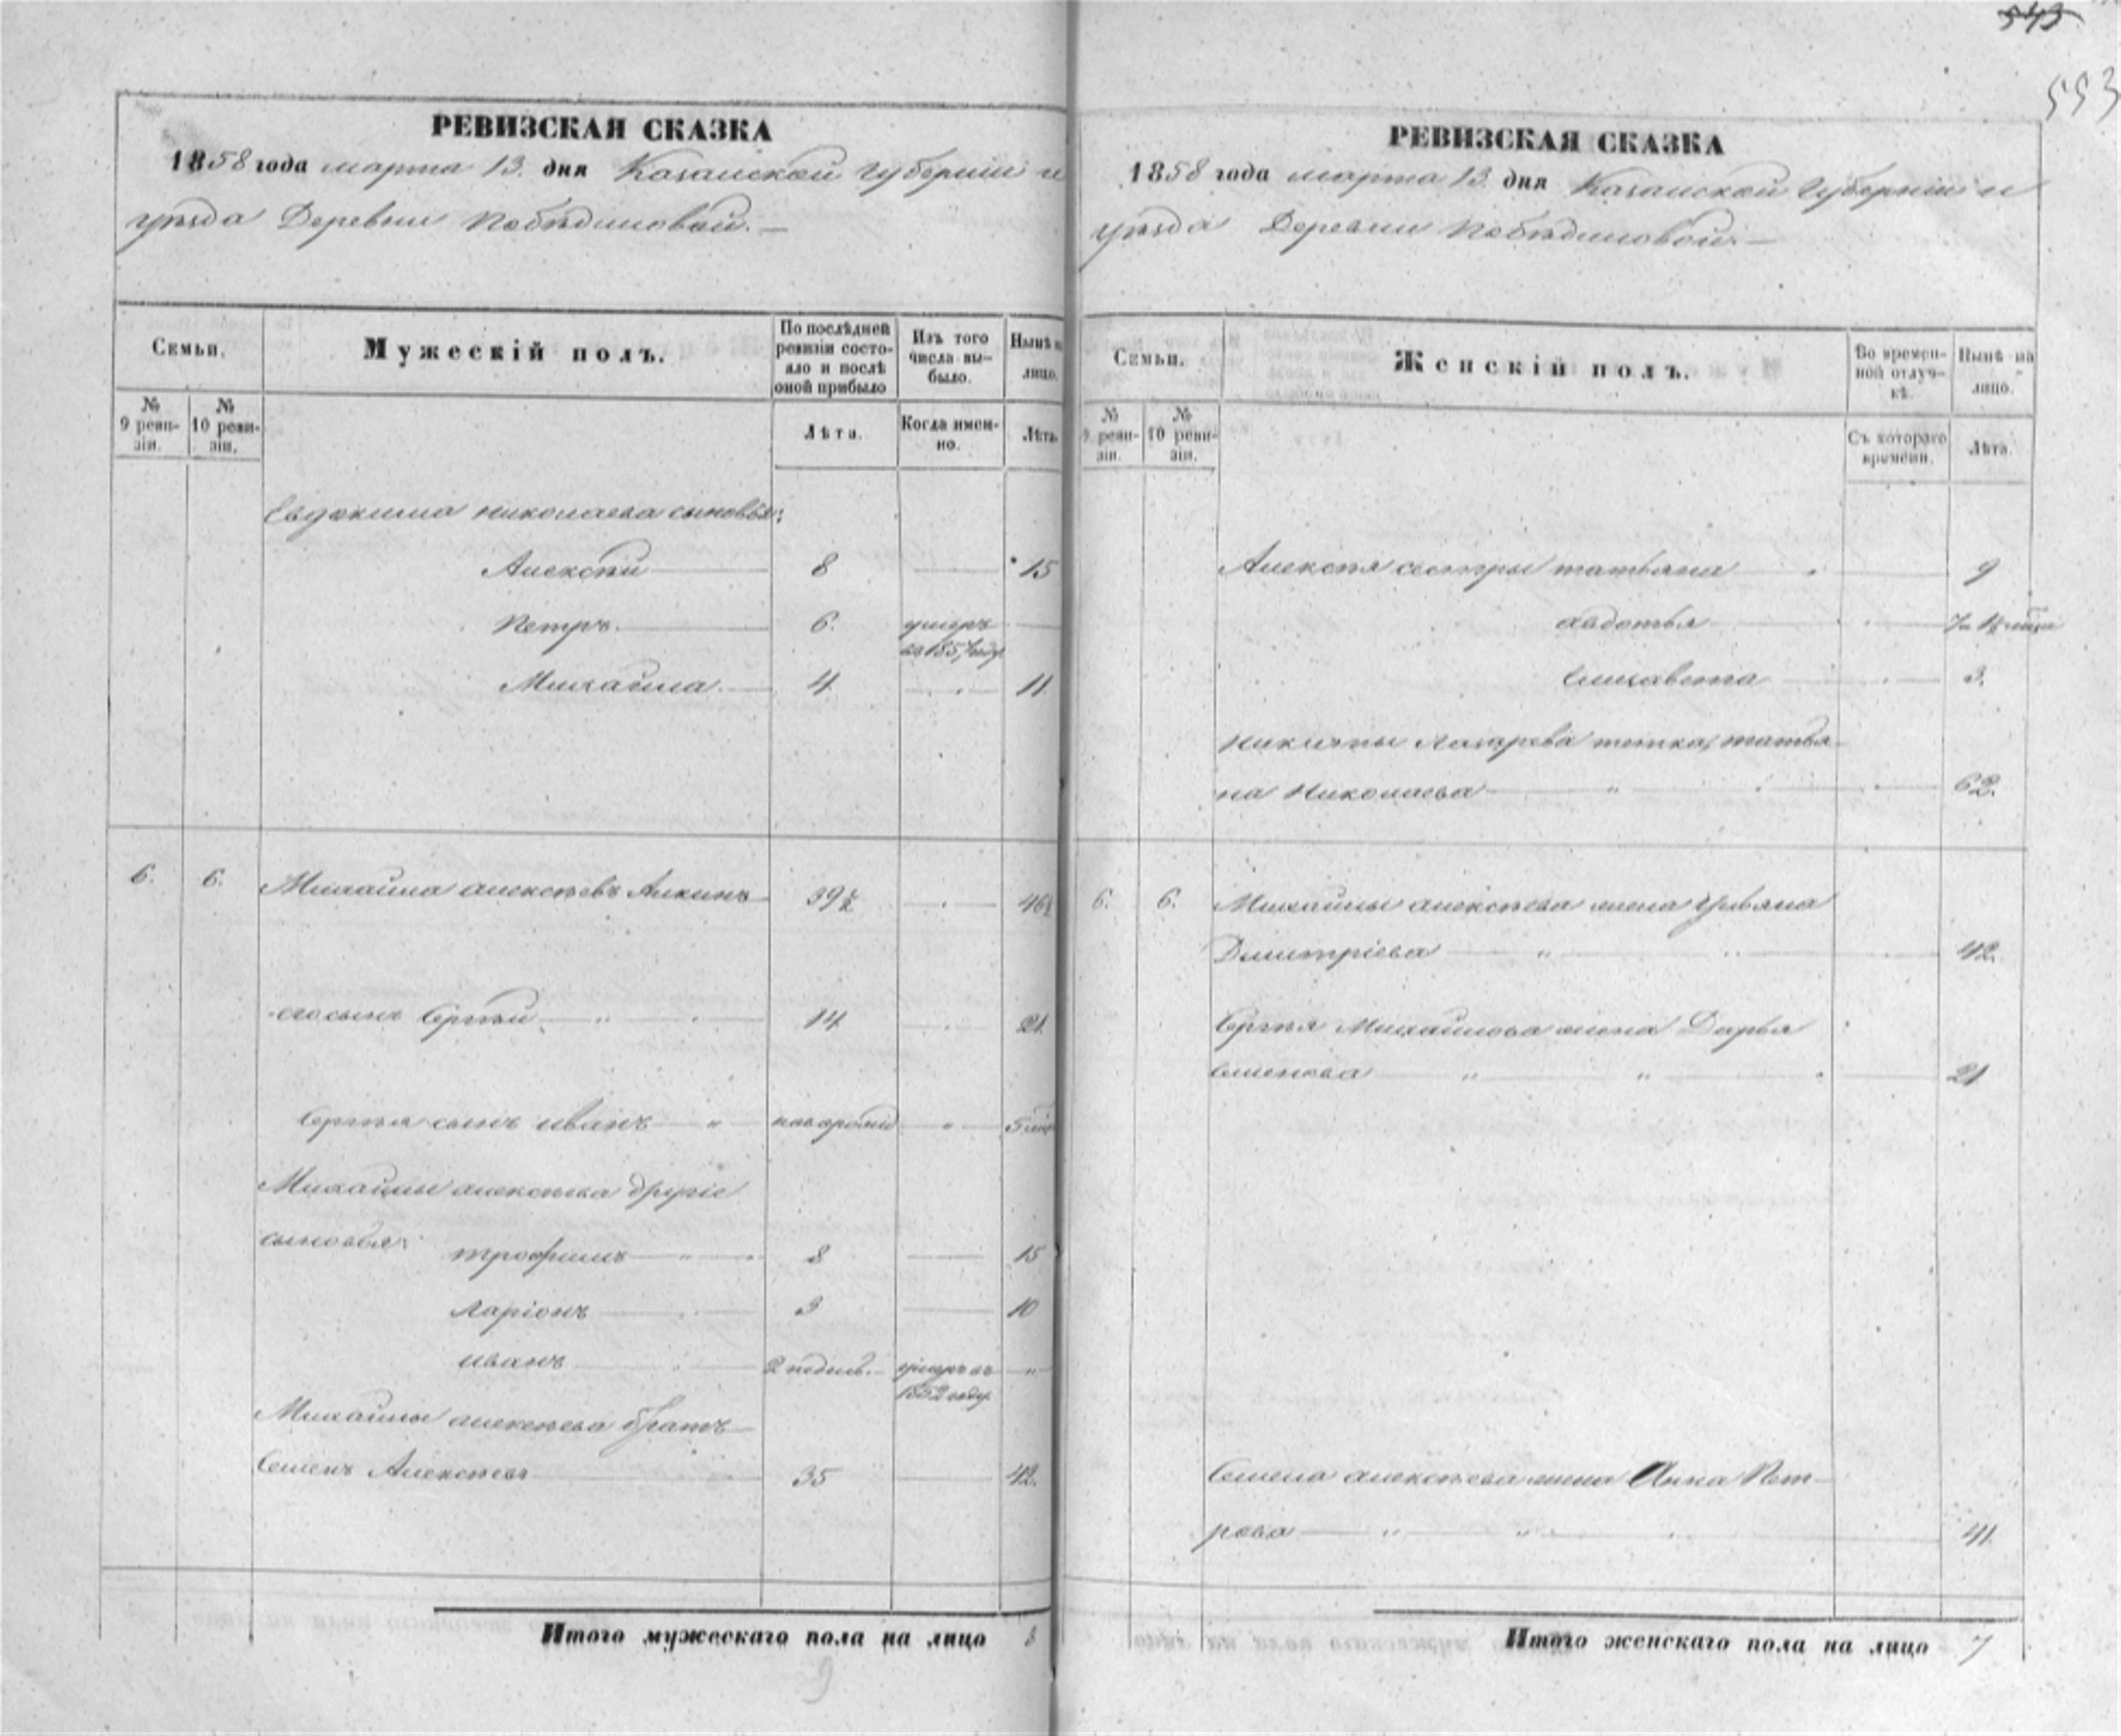 543
553
РЕВИЗСКАЯ СКАЗКА
1858 года марта 13. дня Казанской Губерніи и
уѣзда Деревни Побѣдиловой.—
Семьи.
Мужескій полъ.
По послѣдней ревизіи состояло и послѣ оной прибыло
Изъ того числа выбыло.
Нынѣ на лицо.
№ 9 ревизіи.
№ 10 ревизіи.
Лѣта.
Когда именно.
Лѣта.
Евдокима Николаева сыновья:
Алексѣй 8 15
Петръ. 6. умеръ
въ 1857 году
Михайла. 4 11
6. 6. Михайла Алексѣевъ 39½ 46½
его сынъ Сергѣй 14 21
Сергѣя сынъ Иванъ " новорожд " 5 мѣс
Михайлы Алексѣева другіе
сыновья: Трофимъ 8 15
Ларіонъ 3 10
Иванъ 2 недѣл. умеръ въ "
1852 году
Михайлы Алексѣева братъ
Семенъ Алексѣевъ 35 42.
Итого мужескаго пола на лицо 8
9
РЕВИЗСКАЯ СКАЗКА
1858 года марта 13. дня Казанской Губерніи и
уѣзда Деревни Побѣдиловой.—
Семьи.
Женскій полъ.
Во временной отлучкѣ.
Нынѣ на лицо.
№ 9 ревизіи.
№ 10 ревизіи.
Съ котораго времени.
Лѣта.
Алексѣя сестры Татьяна 9
Авдотья
Елизавета 3.
Никиты Лазарева тетка, Татья-
на Николаева " 62.
6. 6. Михайлы Алексѣева жена Ульяна
Димитріева " 42.
Сергѣя Михайлова жена Дарья
Семенова " " 21
Семена Алексѣева жена Анна Пет-
рова " " 41.
Итого женскаго пола на лицо 7